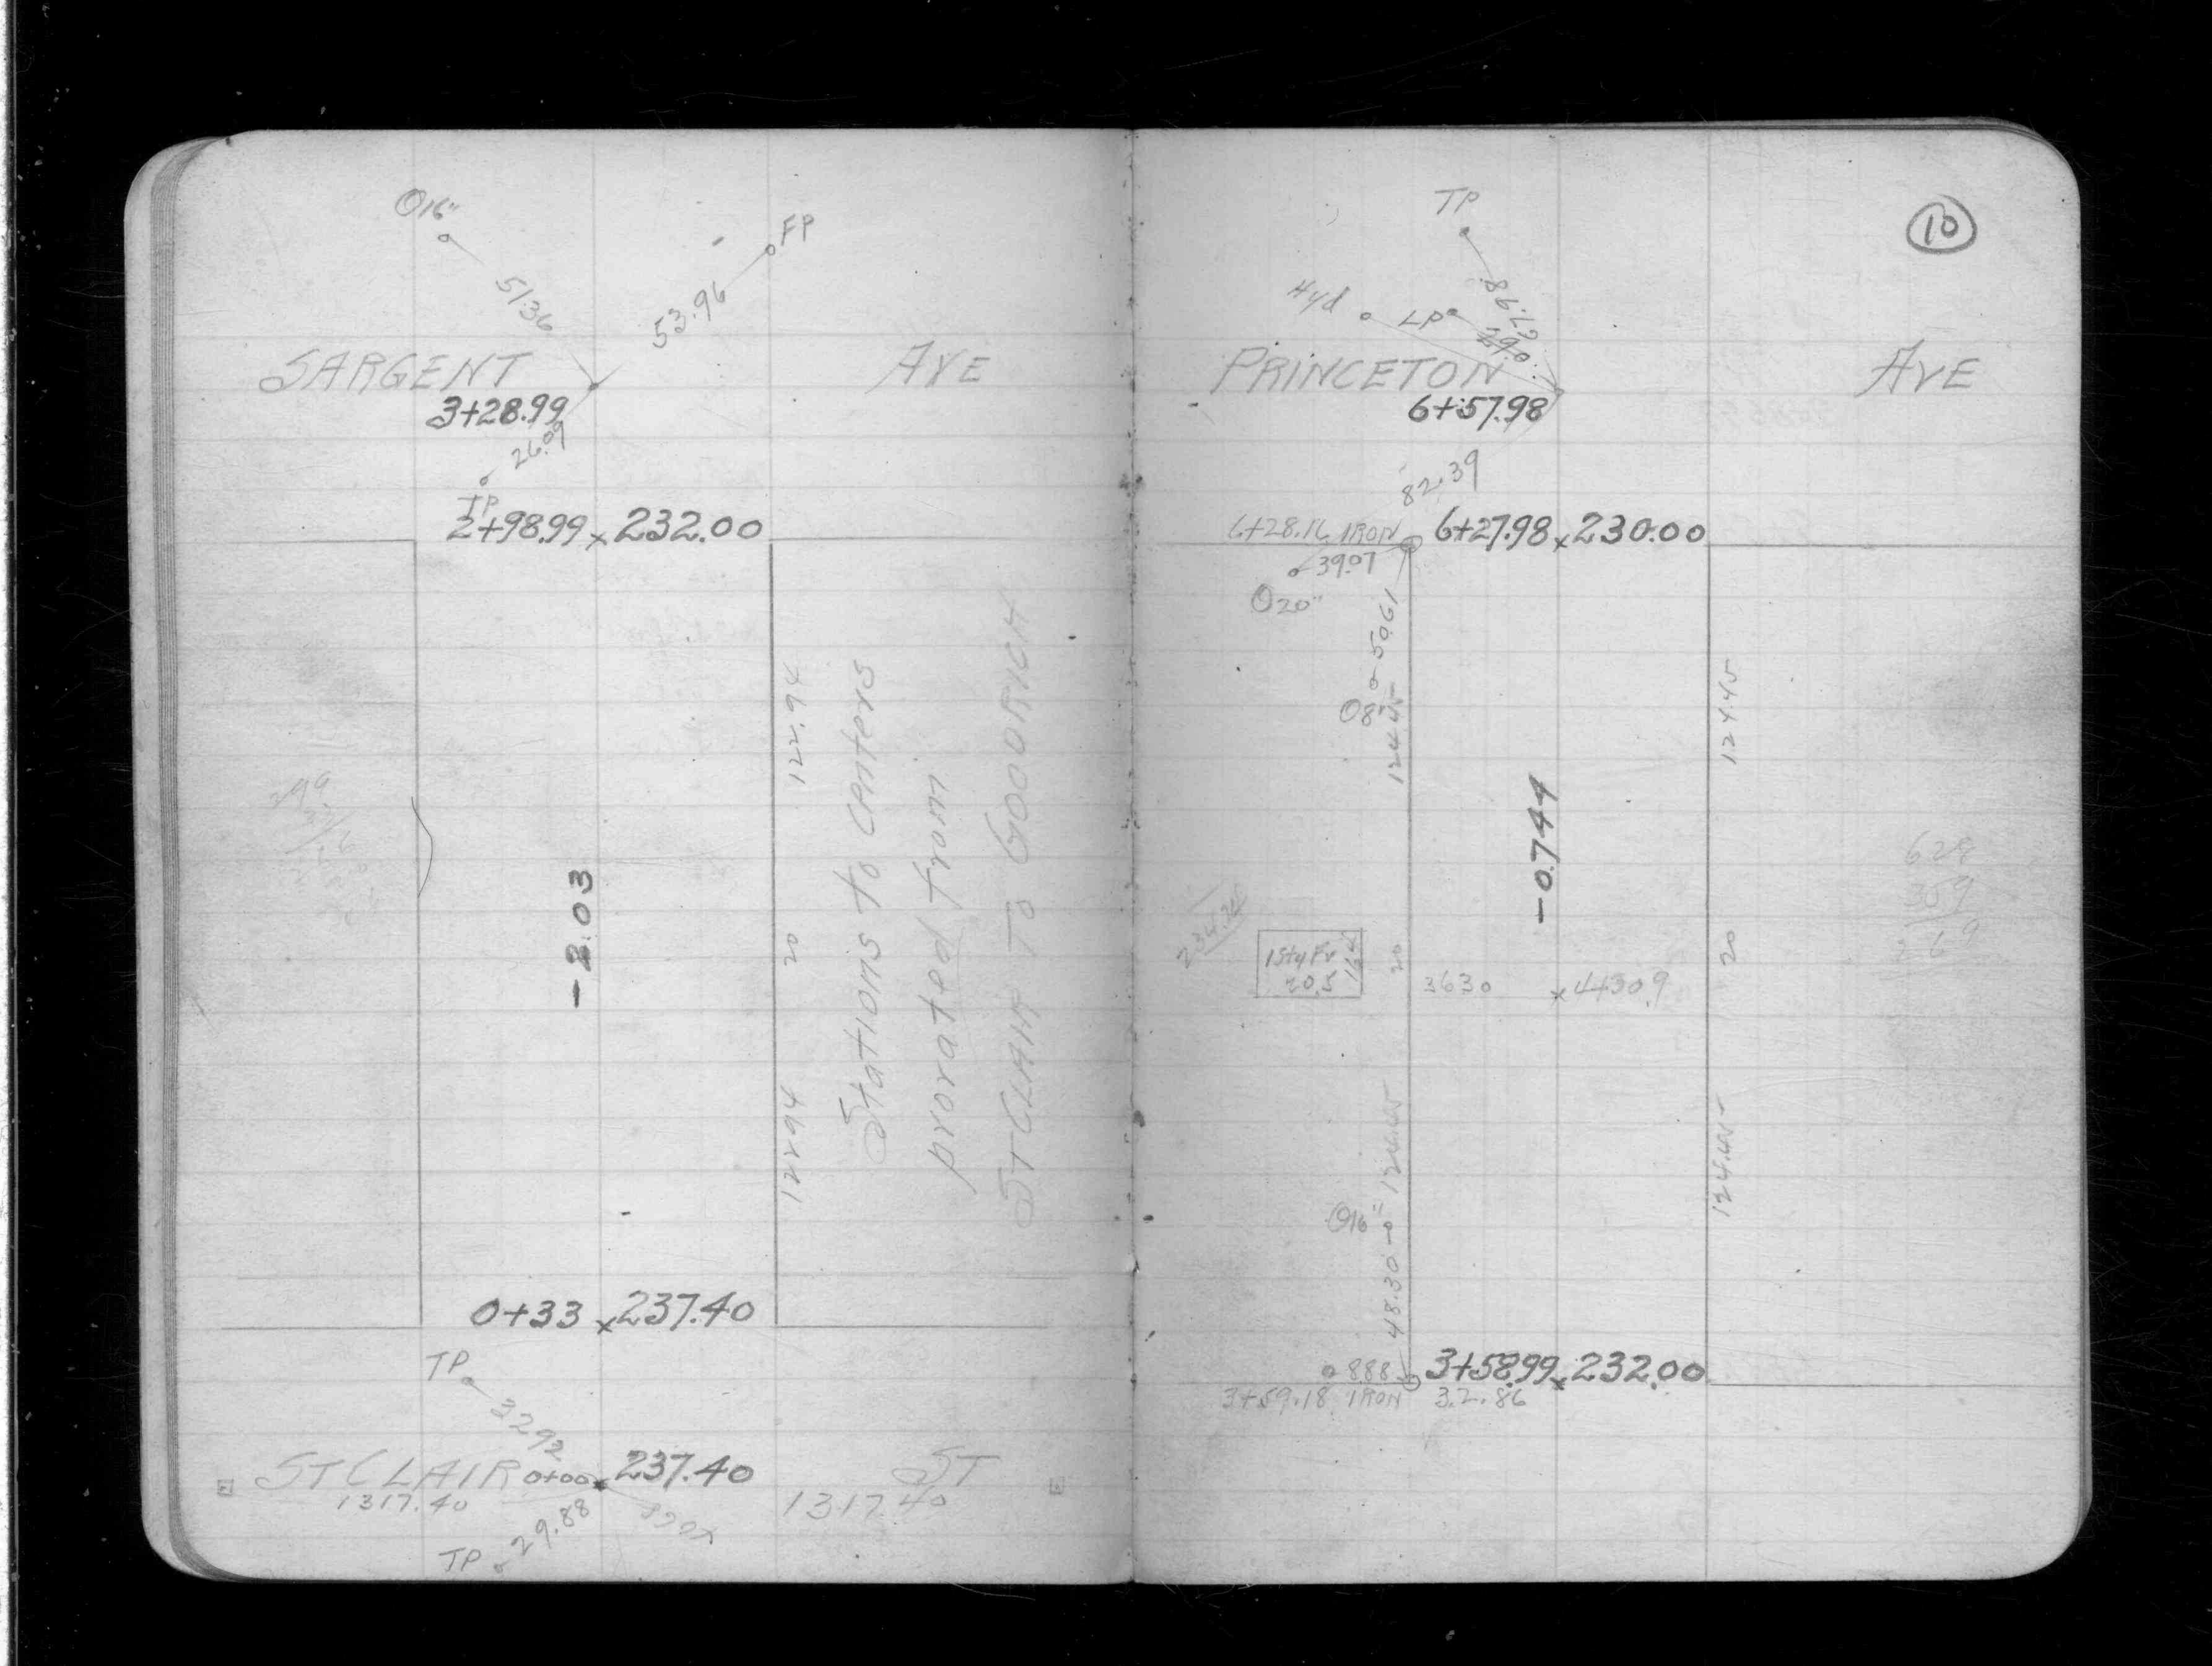 O16"
FP
5136
53.96
SARGENT AVE
3+28.99
26.09
TP
2+98.99 x 232.00
122.94
Stations to centers
prorated from
ST CLAIR To GOODRICH
-2.03
20
12294
0+33 x 237.40
TP
3292
ST CLAIR 0+00 x 237.40 ST
1317.40
1317.40
29.88
TP
10
TP
Hyd
LP
67.98
PRINCETON AVE
6+57.98
82.39
6+28.16 IRON 6+27.98 x 230.00
39.07
O20"
5061
O8"
12445
12445
-0.744
628
359
269
234.24
1 Sty Fr
20.5
164
20
3630 x 4+30.9
20
12445
12445
O16"
48.30
888 3+58.99 x 232.00
3+59.18 IRON 32.86